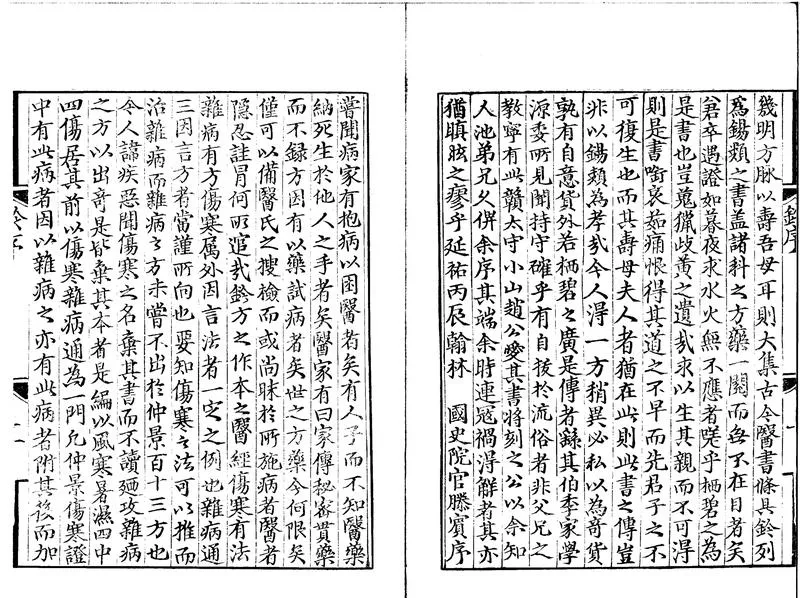 幾明方脉以壽吾母耳則大集古今醫書條具鈐列
爲錫類之書盖諸科之方藥一闋而無不在目者矣
倉卒遇證如暮夜求水火無不應者嗟乎栖碧之為
是書也豈蒐獵岐黄之遺哉求以生其親而不可得
則是書啣哀茹痛恨得其道之不早而先君子之不
可復生也而其壽母夫人者猶在此則此書之傳豈
非以錫類為孝哉今人得一方稍異必私以為奇貨
孰有自意貨外若栖碧之廣是傳者錄其伯季家學
源委所見聞持守確乎有自拔於流俗者非父兄之
教寧有此贛太守小山趙公愛其書將刻之公以余知
人池弟兄久俾余序其端余時連冦禍得解者其亦
猶瞋眩之瘳乎延祐丙辰翰林 國史院官滕賓序
嘗聞病家有抱病以困醫者矣有人子而不知醫藥
納死生於他人之手者矣醫家有曰家傳秘寳貫藥
而不録方因有以藥試病者矣世之方藥今何限矣
僅可以備醫氏之搜檢而或尚昧於所施病者醫者
隐忍詿冒何所追哉鈐方之作本之醫經傷寒有法
雜病有方傷寒属外因言法者一定之例也雜病通
三因言方者當謹所向也要知傷寒之法可以推而
治雜病而雜病之方未嘗不出於仲景百十三方也
今人諱疾惡聞傷寒之名棄其書而不讀廼攻雜病
之方以出奇是皆棄其本者是編以風寒暑濕四中
四傷居其前以傷寒雜病通為一門凢仲景傷寒證
中有此病者因以雜病之亦有此病者附其後而加
鈐序